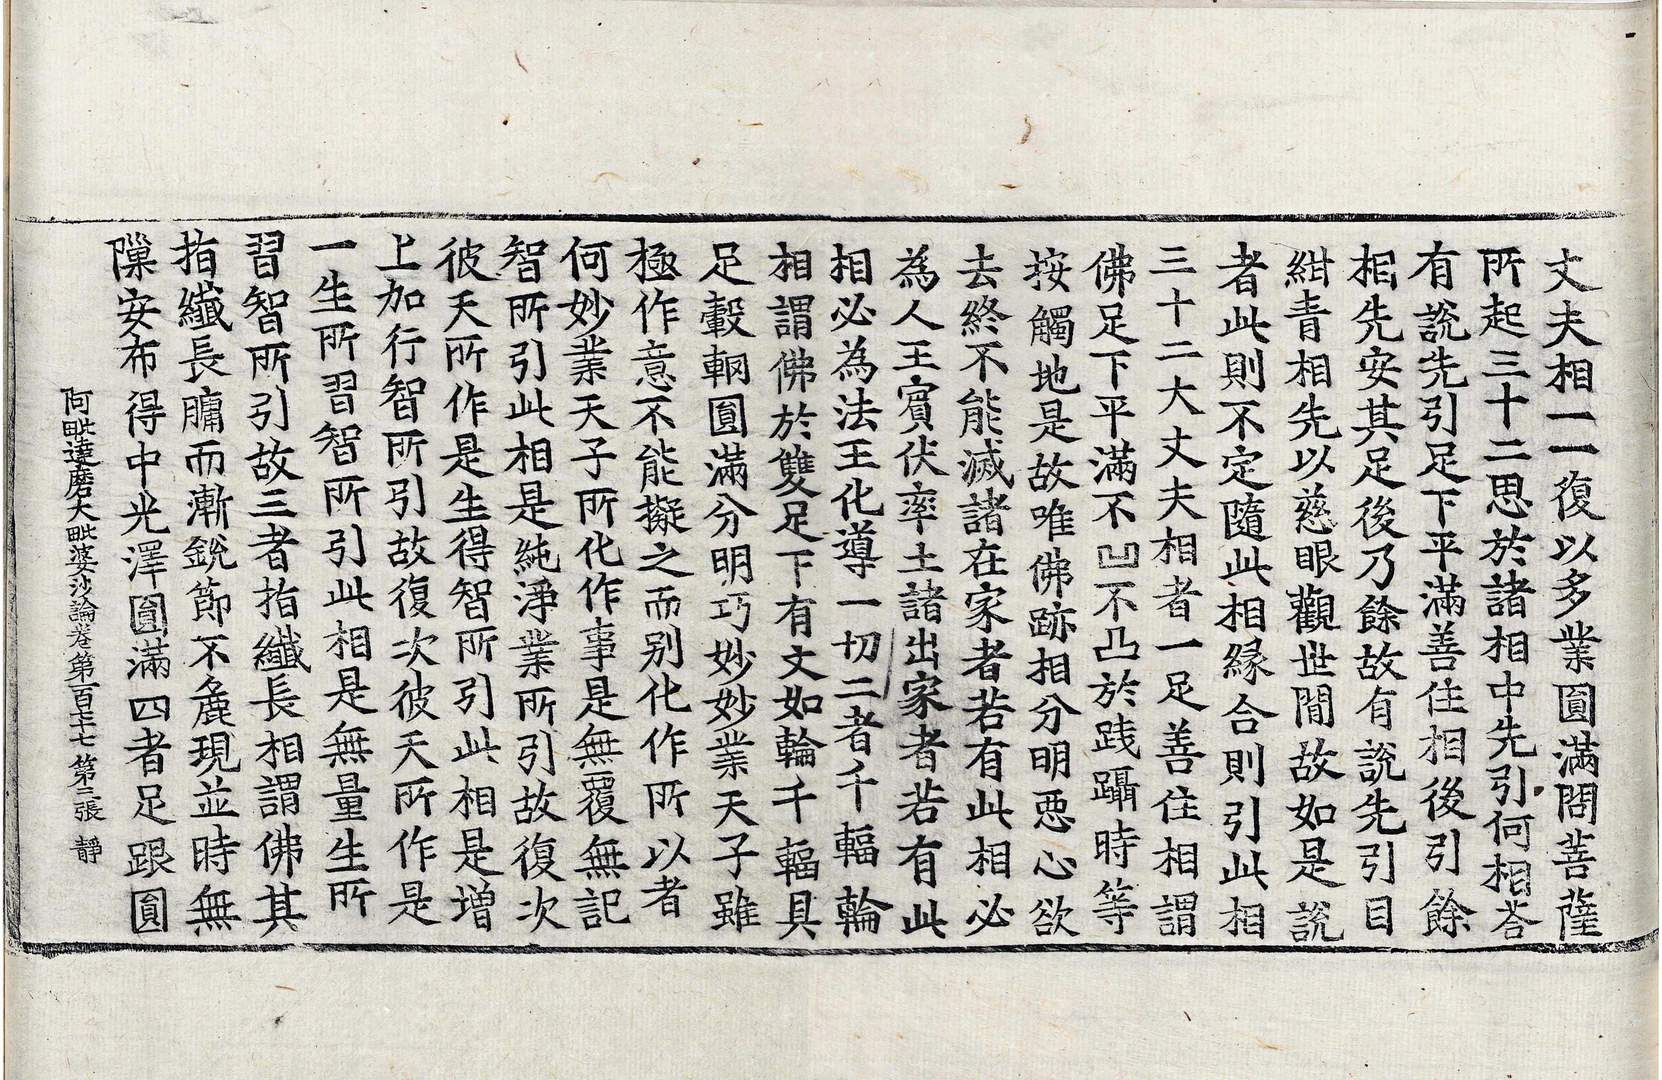 丈夫相一一復以多業圓滿問菩薩
所起三十二思於諸相中先引何相荅
有說先引足下平滿善住相後引餘
相先安其足後乃餘故有說先引目
紺青相先以慈眼觀世間故如是說
者此則不定隨此相緣合則引此相
三十二大丈夫相者一足善住相謂
佛足下平滿不凹不凸於踐躡時等
按觸地是故唯佛跡相分明惡心欲
去終不能滅諸在家者若有此相必
為人王賓伏率土諸出家者若有此
相必為法王化導一切二者千輻輪
相謂佛於雙足下有文如輪千輻具
足轂輞圓滿分明巧妙妙業天子雖
極作意不能擬之而别化作所以者
何妙業天子所化作事是無覆無記
智所引此相是純淨業所引故復次
彼天所作是生得智所引此相是增
上加行智所引故復次彼天所作是
一生所習智所引此相是無量生所
習智所引故三者指纖長相謂佛其
指纖長𦟛而漸銳節不麁現並時無
隟安布得中光澤圓滿四者足跟圓
阿毗達磨大毗婆沙論卷第一百七十七 第三張 靜